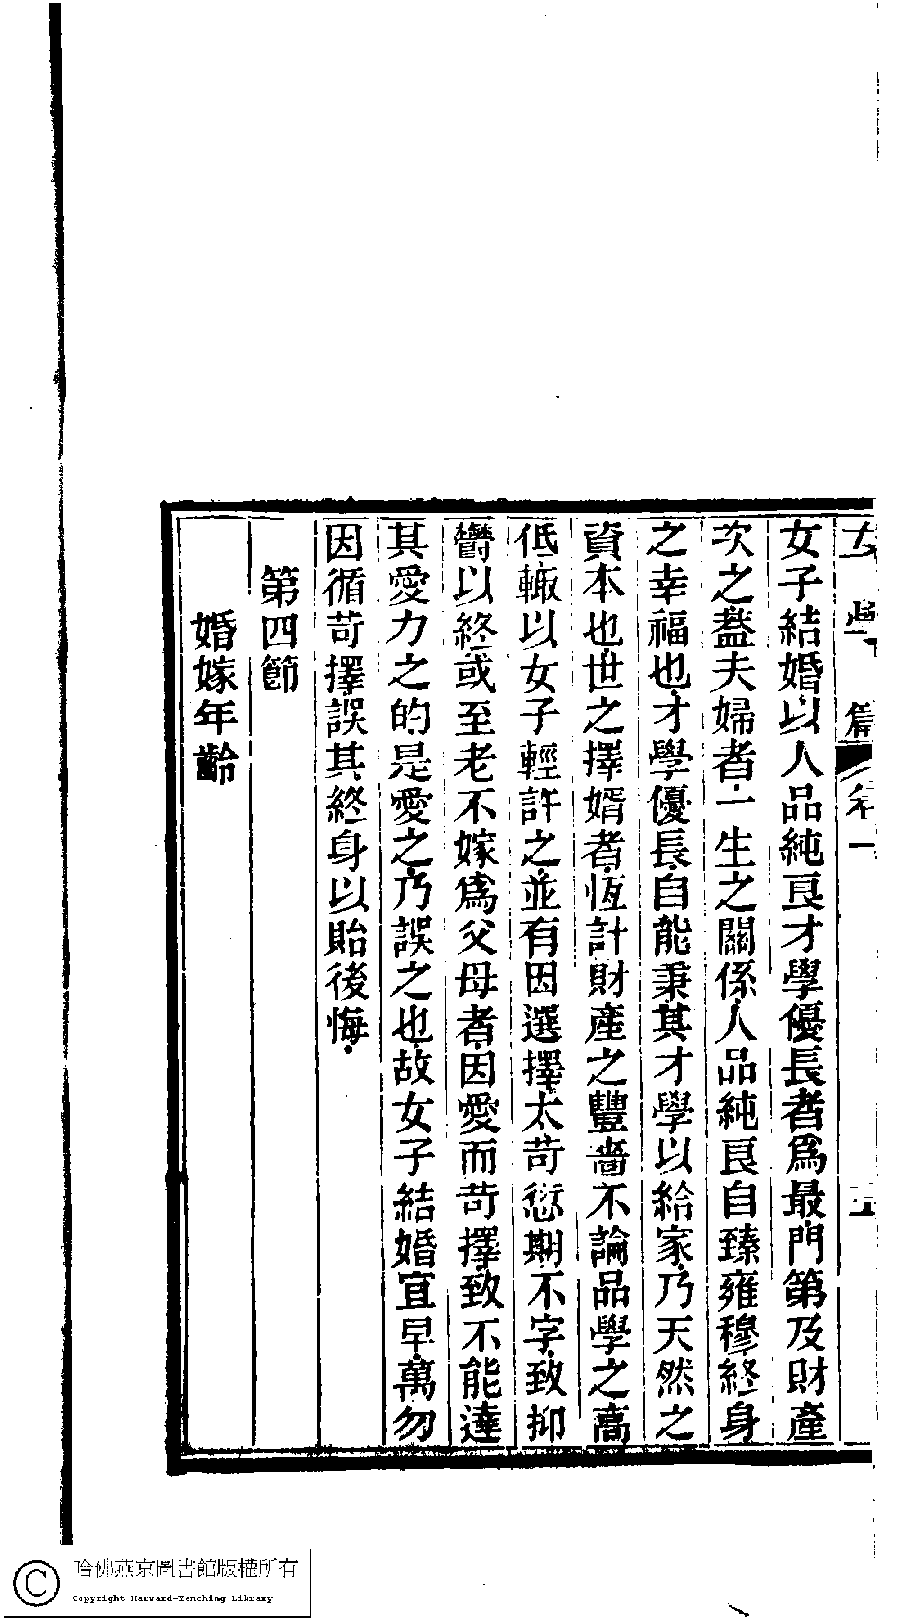 女學篇 卷一 五
女子結婚以人品純良才學優長者爲最門第及財產
次之蓋夫婦者一生之關係人品純良自臻雍穆終身
之幸福也才學優長自能秉其才學以給家乃天然之
資本也世之擇婿者恆計財產之豐嗇不論品學之高
低輙以女子輕許之並有因選擇太苛愆期不字致抑
鬱以終或至老不嫁爲父母者因愛而苛擇致不能達
其愛力之的是愛之乃誤之也故女子結婚宜早萬勿
因循苛擇誤其終身以貽後悔
第四節
婚嫁年齡
哈佛燕京圖書館版權所有
Copyright Harvard-Yenching Library